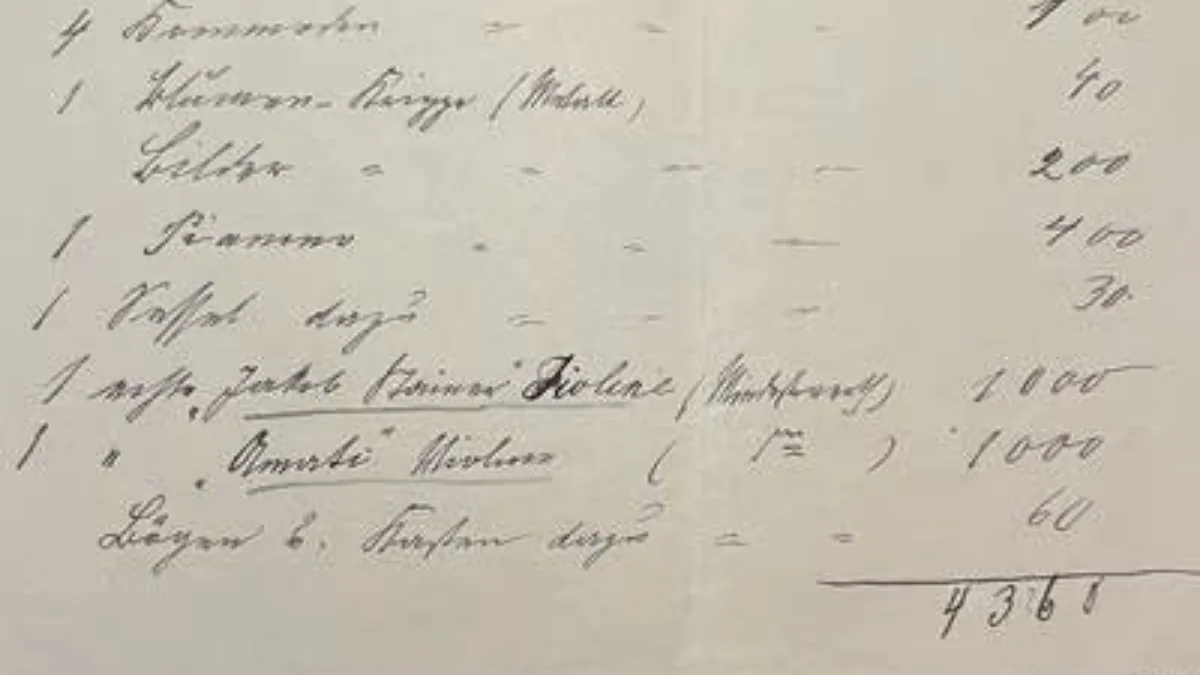 4 Kommoden " " "
1 Blumen-Krippe (Metall) 40
Bilder " " " " 200
1 Pianino " " " 400
1 Sessel dazu " " " 30.
1 echte „Jakob Stainer“ Violine (Mindestwert) 1000
1 " „Amati“ Violine ( ) 1000
Bögen u. Kasten dazu " " 60
4360